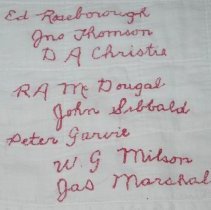 Ed Roseborough
Jno Thomson
D A Christie
R A Mc Dougal
John Sibbald
Peter Garvie
W. G Milson
Jas Marshal